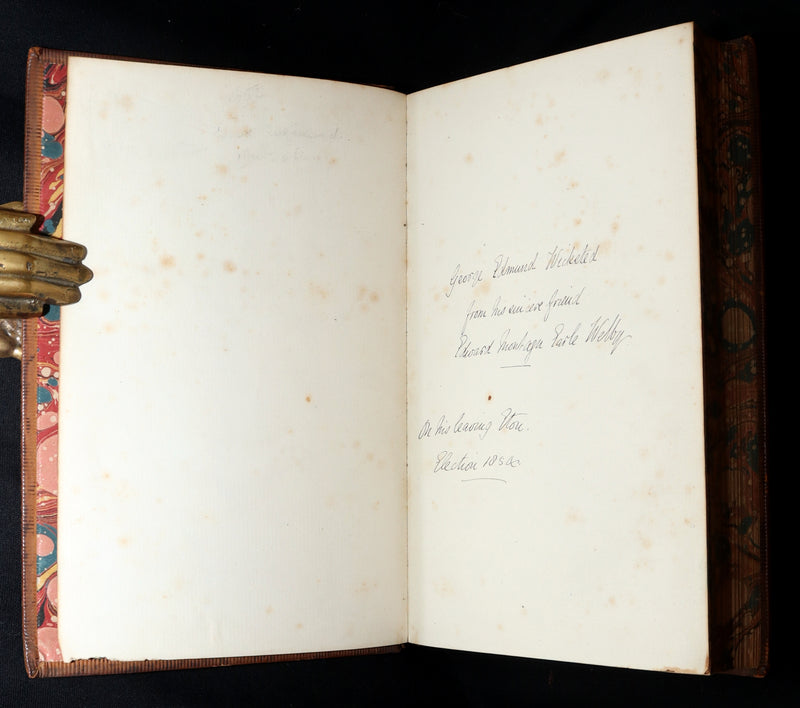 George Edmund Wicksted
from his sincere friend
Edward Montagu Earle Welby
On his leaving Eton.
Election